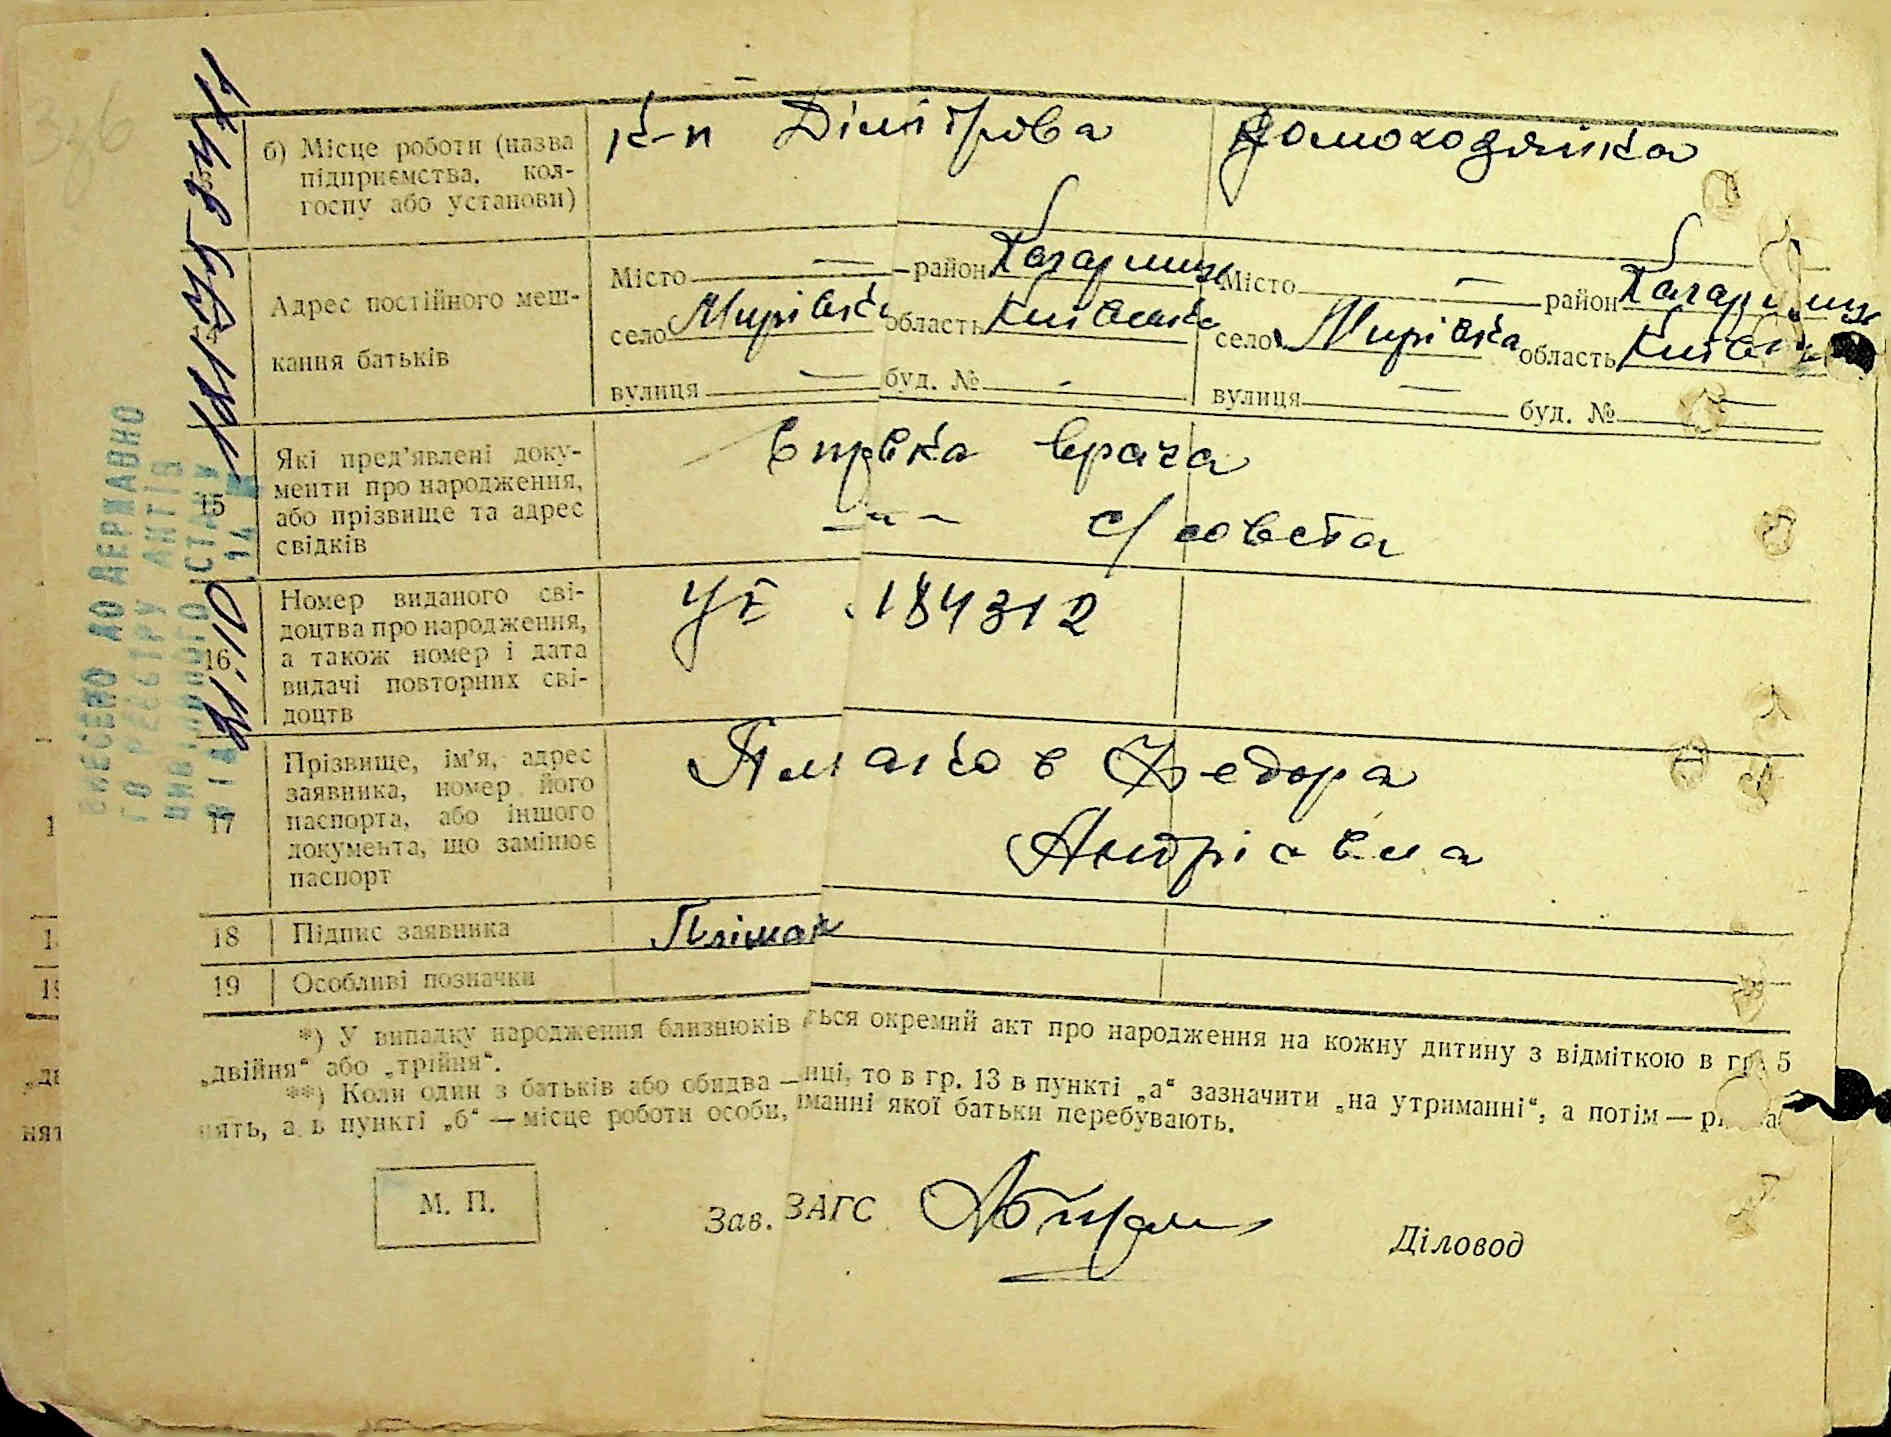 б) Місце роботи (назва
підприємства, кол-
госпу або установи)
к-п Дімітрова
домохозяйка
Адрес постійного меш-
кання батьків
Місто — район Кагарлицьк
село Мирівка область Київська
вулиця — буд. № -
Місто — район Кагарлицьк
село Мирівка область Київськ
вулиця — буд. № —
15
Які пред’явлені доку-
менти про народження,
або прізвище та адрес
свідків
Справка врача
-"- с/совета
16
Номер виданого сві-
доцтва про народження,
а також номер і дата
видачі повторних сві-
доцтв
184312
17
Прізвище, ім’я, адрес
заявника, номер його
паспорта, або іншого
документа, що замінює
паспорт
Федора
Андрієвна
18 Підпис заявника
19 Особливі позначки
*) У випадку народження близнюків ться окремий акт про народження на кожну дитину з відміткою в гр. 5
„двійня“ або „трійня“.
**) Коли один з батьків або обидва — нці, то в гр. 13 в пункті „а“ зазначити „на утриманні“, а потім —
нять, а в пункті „б“ — місце роботи особи, иманні якої батьки перебувають.
М. П.
Зав. ЗАГС
Діловод
ВНЕСЕНО ДО ДЕРЖАВНО
ГО РЕЄСТРУ АКТІВ
ЦИВІЛЬНОГО СТАНУ